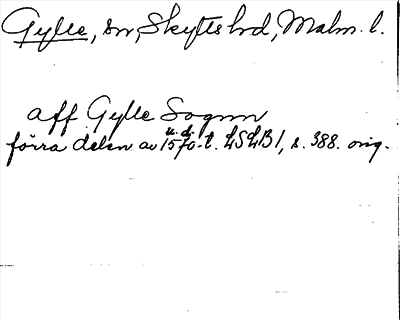 Gylle, sn, Skytts hd, Malm. l.
aff Gylle Sognn
u. d.
förra delen av 1570-t. LSLB 1, s. 388. orig.